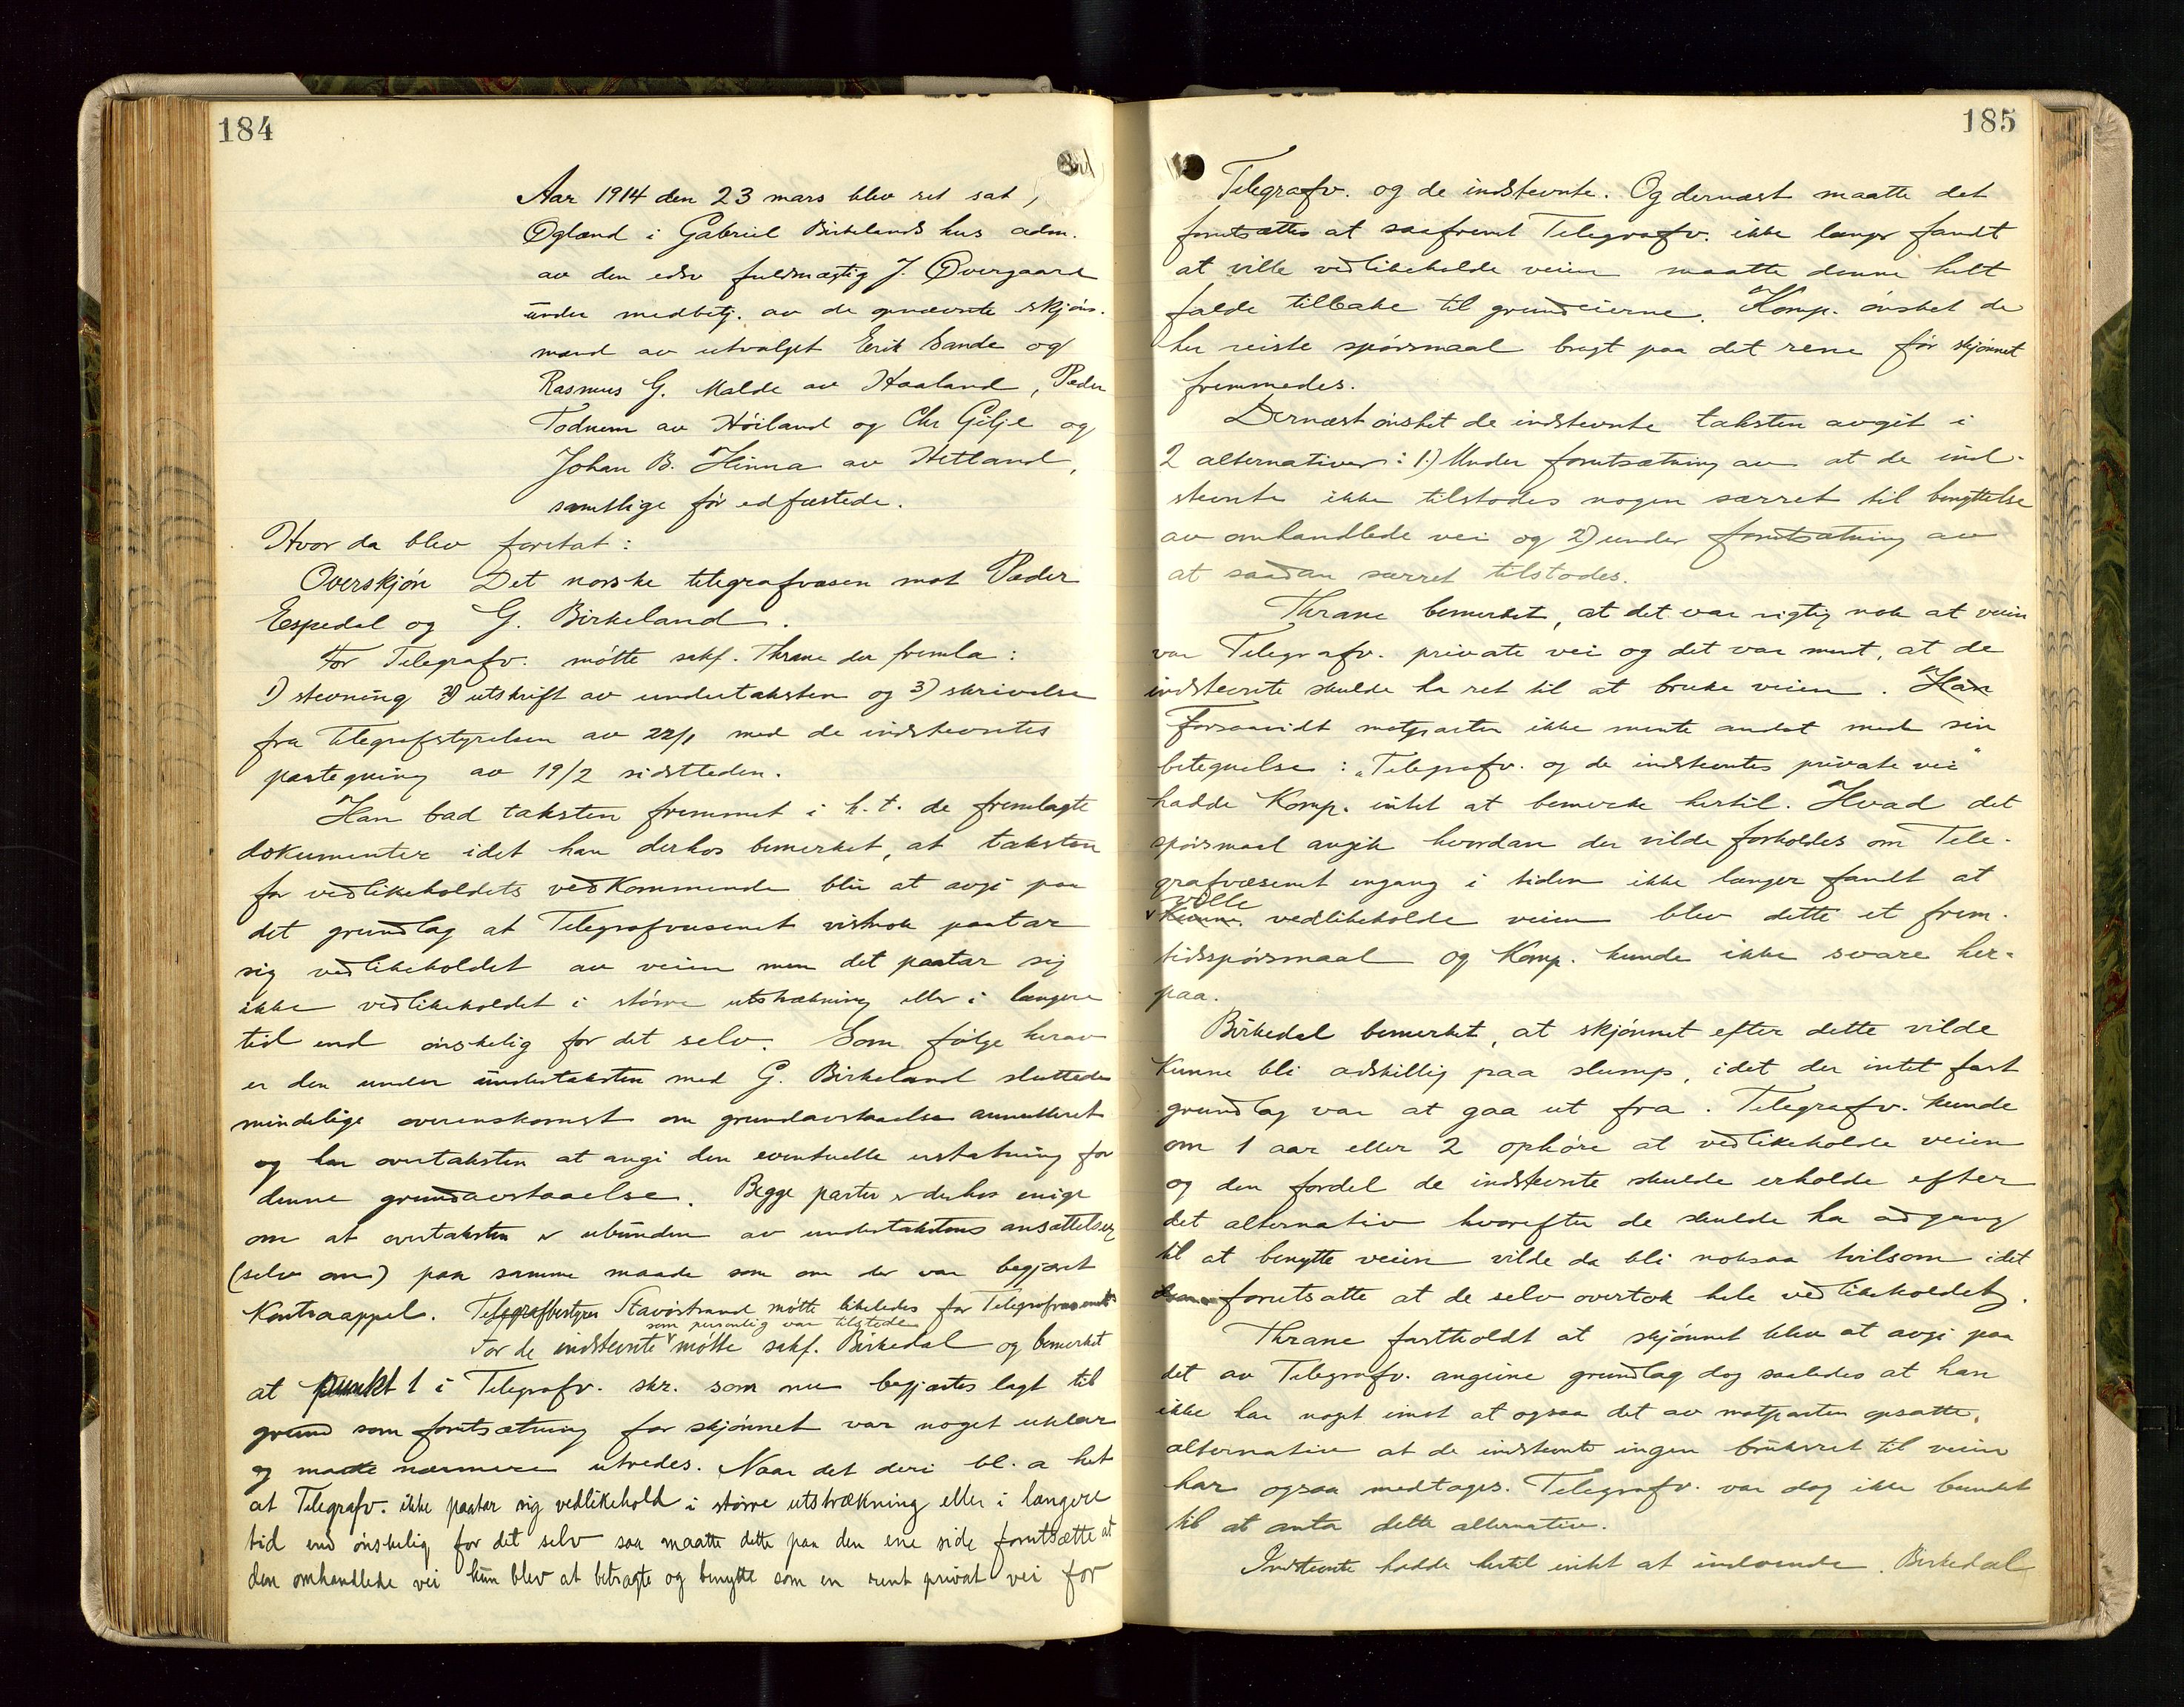 184
Aar 1914 den 23 mars blev ret sat,
Øgland i Gabriel Birkelands hus adm.
av den edsv fuldmægtig J. Øvergaard
under medbetj. av de opnævnte skjøns-
mænd av utvalget Erik Sande og
Rasmus G. Malde av Haaland, Peder
Todnem av Høiland og Chr Gilje og
Johan B. Hinna av Hetland,
samtlige før edfæstede.
Hvor da blev foretat:
Overskjøn Det norske telegrafvæsen mot Peder
Espedal og G. Birkeland.
For Telegrafv. møtte sakf. Thrane der fremla:
1) stevning 2) utskrift av undertaksten og 3) skrivelse
fra Telegrafstyrelsen av 22/1 med de indstevntes
paategning av 19/2 sidstleden.
Han bad taksten fremmet i h. t. de fremlagte
dokumenter idet han derhos bemerket, at taksten
for vedlikeholdets vedkommende blir at avgi paa
det grundlag at Telegrafvæsenet vistnok paatar
sig vedlikeholdet av veien men det paatar sig
ikke vedlikeholdet i større utstrækning eller i længere
tid end ønskelig for det selv. Som følge herav
er den under undertaksten med G. Birkeland sluttede
mindelige overenskomst om grundavstaaelse annulleret
og har overtaksten at angi den eventuelle erstatning for
denne grundavstaaelse. Begge parter er derhos enige
om at overtaksten er ubunden av undertakstens ansættelser
(selv om) paa samme maade som om der var begjæret
Kontraappel. Telegrafbestyrer Stavøstrand møtte likeledes for Telegrafvæsenet
som personlig var tilstede
For de indstevnte møtte sakf. Birkedal og bemerket
at punkt 1 i Telegrafv. skr. som nu begjæres lagt til
grund som forutsætning for skjønnet var noget uklar
og maatte nærmere utredes. Naar det deri bl. a het
at Telegrafv. ikke paatar sig vedlikehold i større utstrækning eller i længere
tid end ønskelig for det selv saa maatte dette paa den ene side forutsætte at
den omhandlede vei kun blev at betragte og benytte som en rent privat vei for
185
Telegrafv. og de indstevnte. Og dernæst maatte det
forutsættes at saafremt Telegrafv. ikke længer fandt
at ville vedlikeholde veien maatte denne helt
falde tilbake til grundeierne. Komp. ønsket de
her reiste spørsmaal bragt paa det rene før skjønnet
fremmedes.
Dernæst ønsket de indstevnte taksten avgit i
2 alternativer: 1) Under forutsætning av at de ind-
stevnte ikke tilstodes nogen særret til benyttelse
av omhandlede vei og 2) under forutsætning av
at saadan særret tilstodes.
Thrane bemerket, at det var rigtig nok at veien
var Telegrafv. private vei og det var ment, at de
indstevnte skulde ha ret til at bruke veien. Han
Forsaavidt motparten ikke mente andet med sin
betegnelse: „Telegrafv. og de indstevntes private vei"
hadde Komp. intet at bemerke hertil. Hvad det
spørsmaal angik hvordan der vilde forholdes om Tele-
grafvæsenet engang i tiden ikke længer fandt at
ville
kunne vedlikeholde veien blev dette et frem-
tidsspørsmaal og Komp. kunde ikke svare her-
paa.
Birkedal bemerket, at skjønnet efter dette vilde
kunne bli adskillig paa slump, idet der intet fast
grundlag var at gaa ut fra. Telegrafv. kunde
om 1 aar eller 2 ophøre at vedlikeholde veien
og den fordel de indstevnte skulde erholde efter
det alternativ hvorefter de skulde ha adgang
til at benytte veien vilde da bli noksaa tvilsom idet
forutsatte at de selv overtok hele vedlikeholdet.
Thrane fastholdt at skjønnet blev at avgi paa
det av Telegrafv. angivne grundlag dog saaledes at han
ikke har noget imot at ogsaa det av motparten opsatte
alternativ at de indstevnte ingen bruksret til veien
har ogsaa medtages. Telegrafv. var dog ikke bundet
til at anta dette alternativ.
Indstevnte hadde hertil intet at indvende. Birkedal